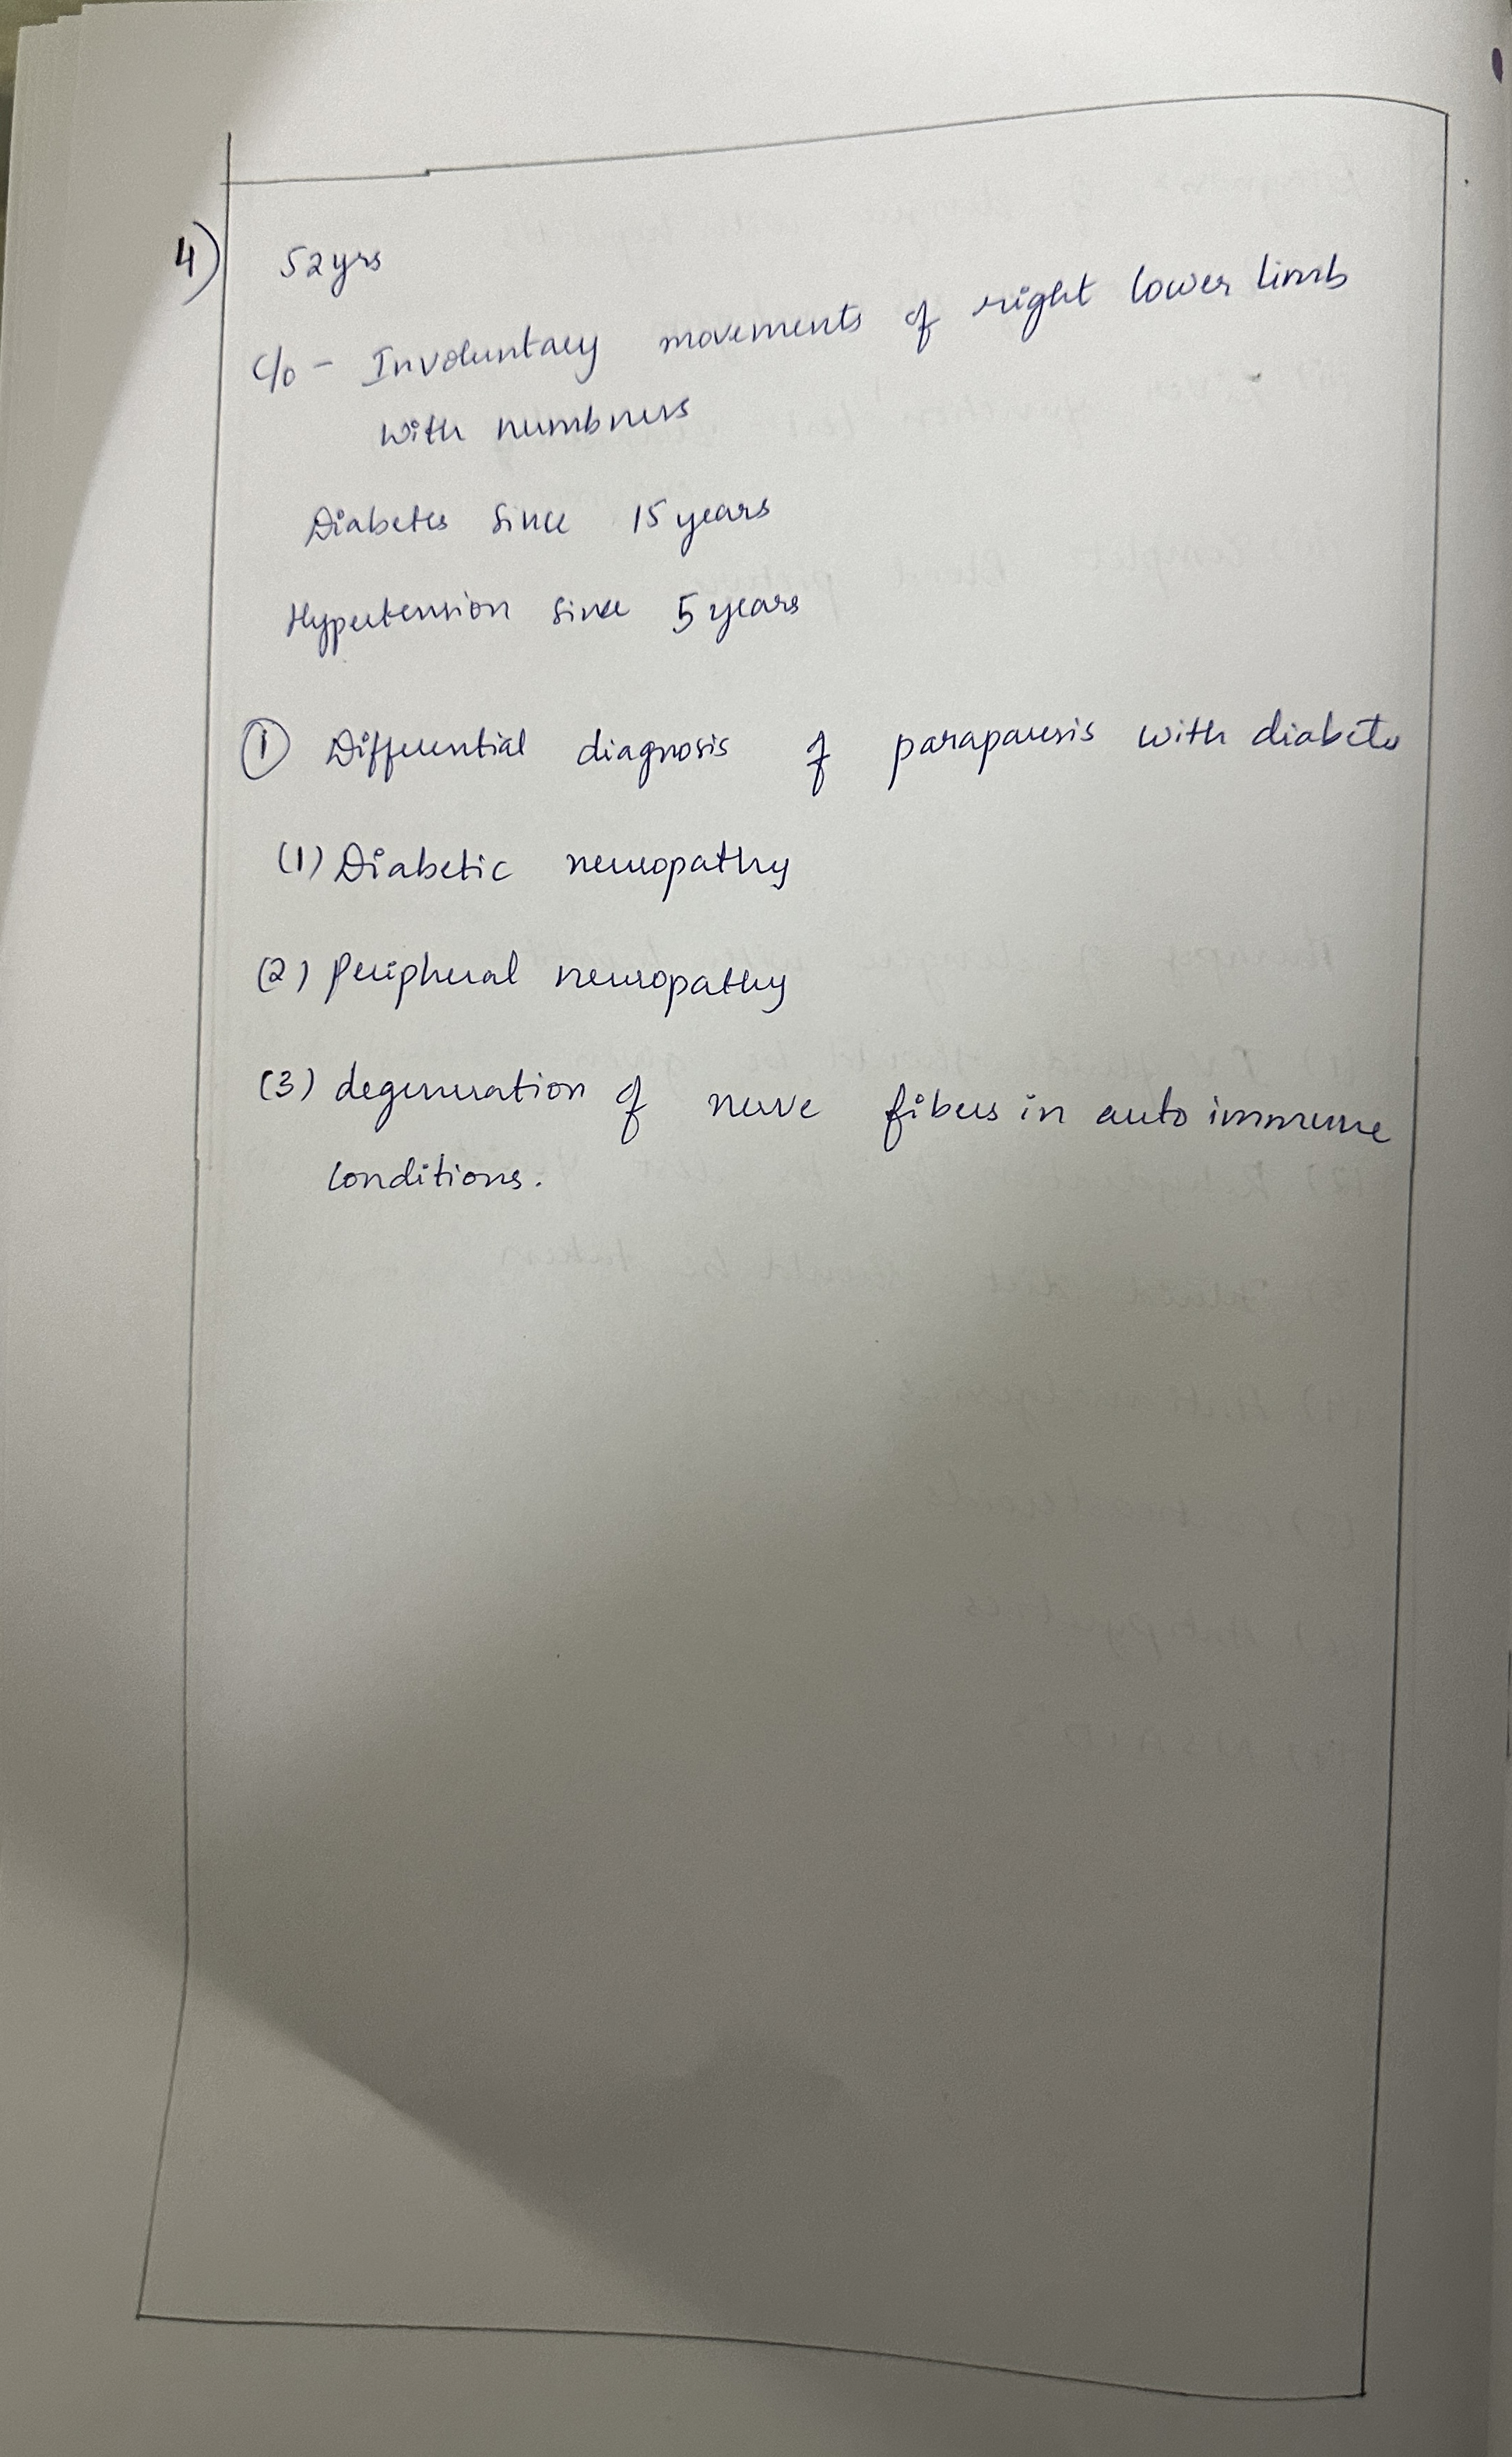 4)
52yrs
C/o - Involuntary movements of right lower limb
with numbness
Diabetes since 15 years
Hypertension since 5 years
① Differential diagnosis of paraparesis with diabetes
(1) Diabetic neuropathy
(2) Peripheral neuropathy
(3) degeneration of nerve fibers in auto immune
conditions.